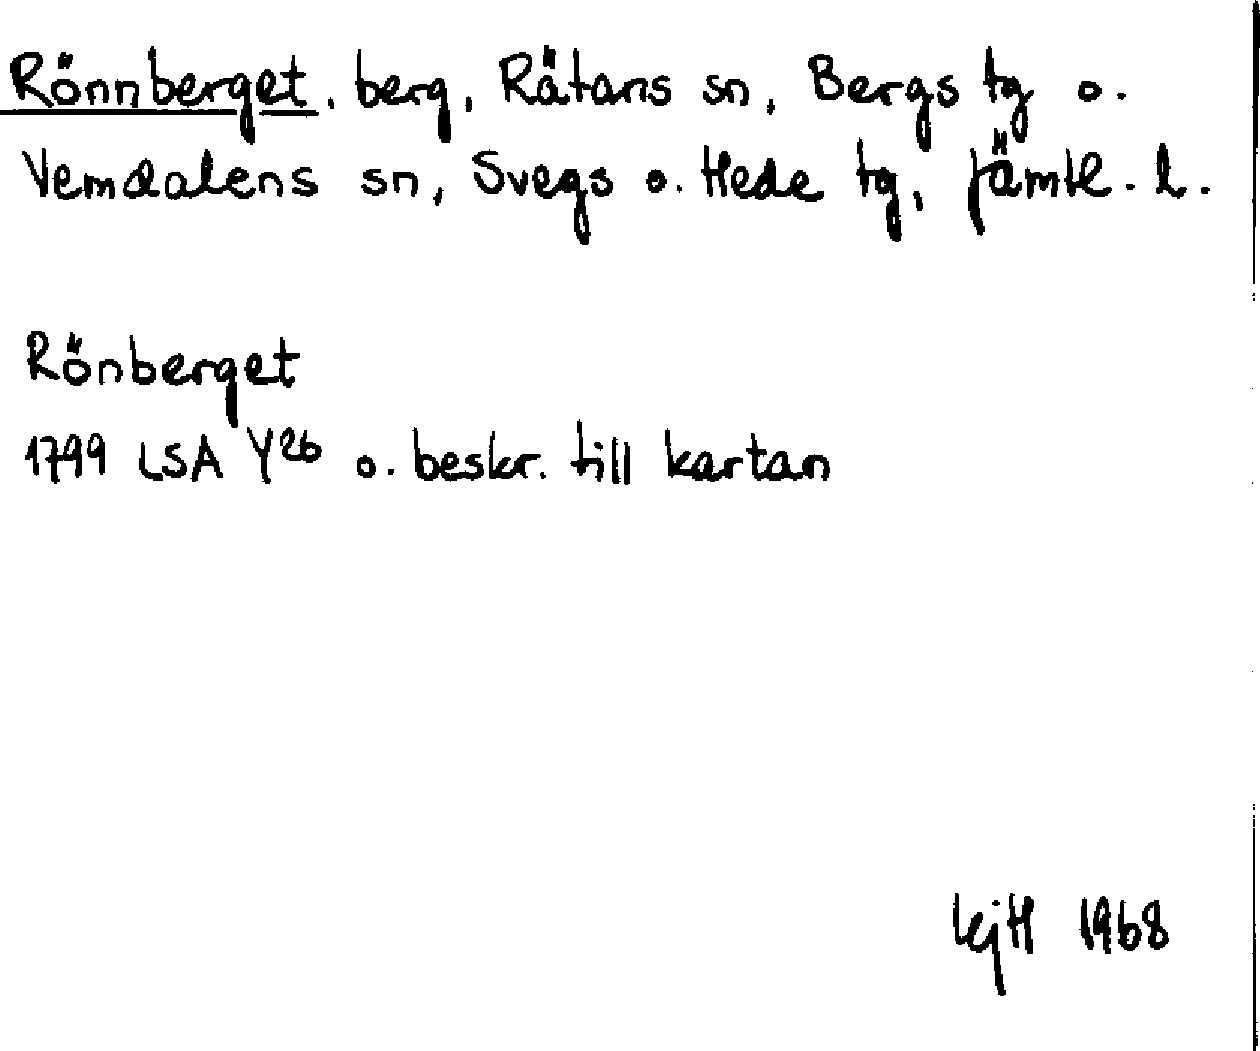 Rönnberget, berg, Rätans sn, Bergs tg o.
Vemdalens sn, Svegs o. Hede tg, Jämtl. l.
Rönberget
1799 LSA Y26 o. beskr. till kartan
kjH 1968